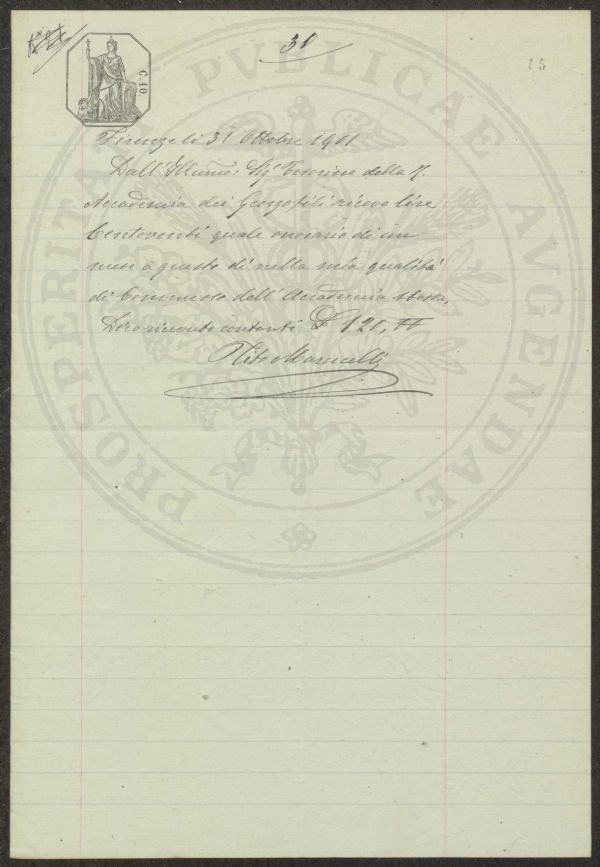 31
C. 10
PROSPERITATI PVBLICAE AVGENDAE
Firenze li 31 Ottobre 1911
Dall' Illumo: Sigr Tesoriere della R.
Accademia dei Georgofili ricevo lire
Centoventi quale onorario di un
mese a questo dì nella mia qualità
di Commesso dell' Accademia stessa,
Dico ricevute contanti £ 120,
Tito Marucelli